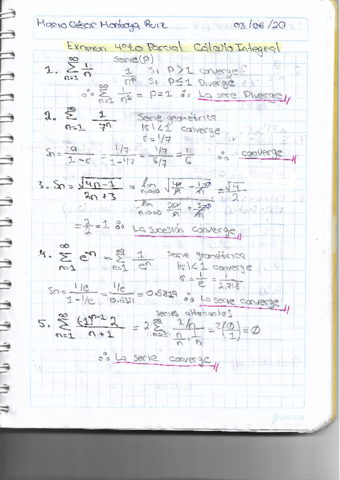 Mario César Montoya Ruiz 03/06/20
Examen 4to Parcial Cálculo Integral
1. ∞ Σ n=1 1/n Serie(P) 1/n^p Si P>1 converge
Si P≤1 Diverge
∴ ∞ Σ n=1 1/n^1 = P=1 ∴ La serie Diverge
2. ∞ Σ n=1 1/7^n Serie geométrica
|r|<1 converge
r=1/7
Sn = a/1-r = 1/7/1-1/7 = 1/7/6/7 = 1/6 ∴ converge
3. Sn = √4n-1/2n+3
= 2/2 = 1 ∴ La sucesión converge
4. ∞ Σ n=1 e^-n = ∞ Σ n=1 1/e^n Serie geométrica
|r|<1 converge
r = 1/e = 1/2.718
Sn = 1/e/1-1/e = 1/e/0.6321 = 0.5819 ∴ La serie converge
5. ∞ Σ n=1 (-1)^n-1 2/n+1 = 2 ∞ Σ n=1 series alternantes
∴ La serie converge